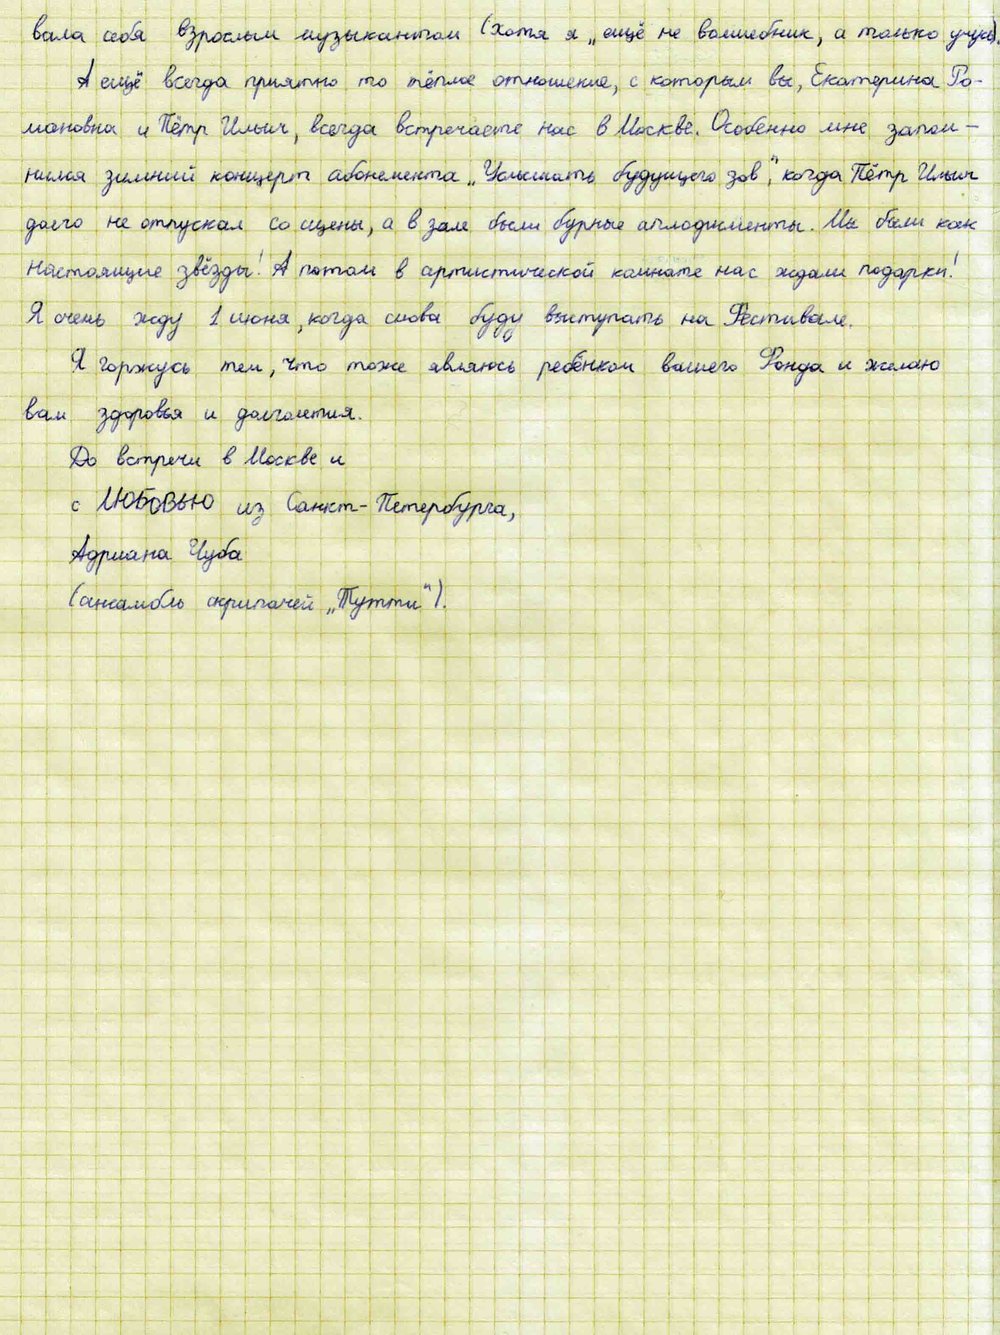 вала себя взрослым музыкантом (хотя я „ещё не волшебник, а только учусь).
А ещё всегда приятно то тёплое отношение, с которым вы, Екатерина Ро-
мановна и Пётр Ильич, всегда встречаете нас в Москве. Особенно мне запом-
нился зимний концерт абонемента „Услышать будущего зов", когда Пётр Ильич
долго не отпускал со сцены, а в зале были бурные аплодисменты. Мы были как
настоящие звёзды! А потом в артистической комнате нас ждали подарки!
Я очень жду 1 июня, когда снова буду выступать на Фестивале.
Я горжусь тем, что тоже являюсь ребёнком вашего Фонда и желаю
вам здоровья и долголетия.
До встречи в Москве и
с ЛЮБОВЬЮ из Санкт-Петербурга,
Адриана Чуба
(ансамбль скрипачей „Тутти").